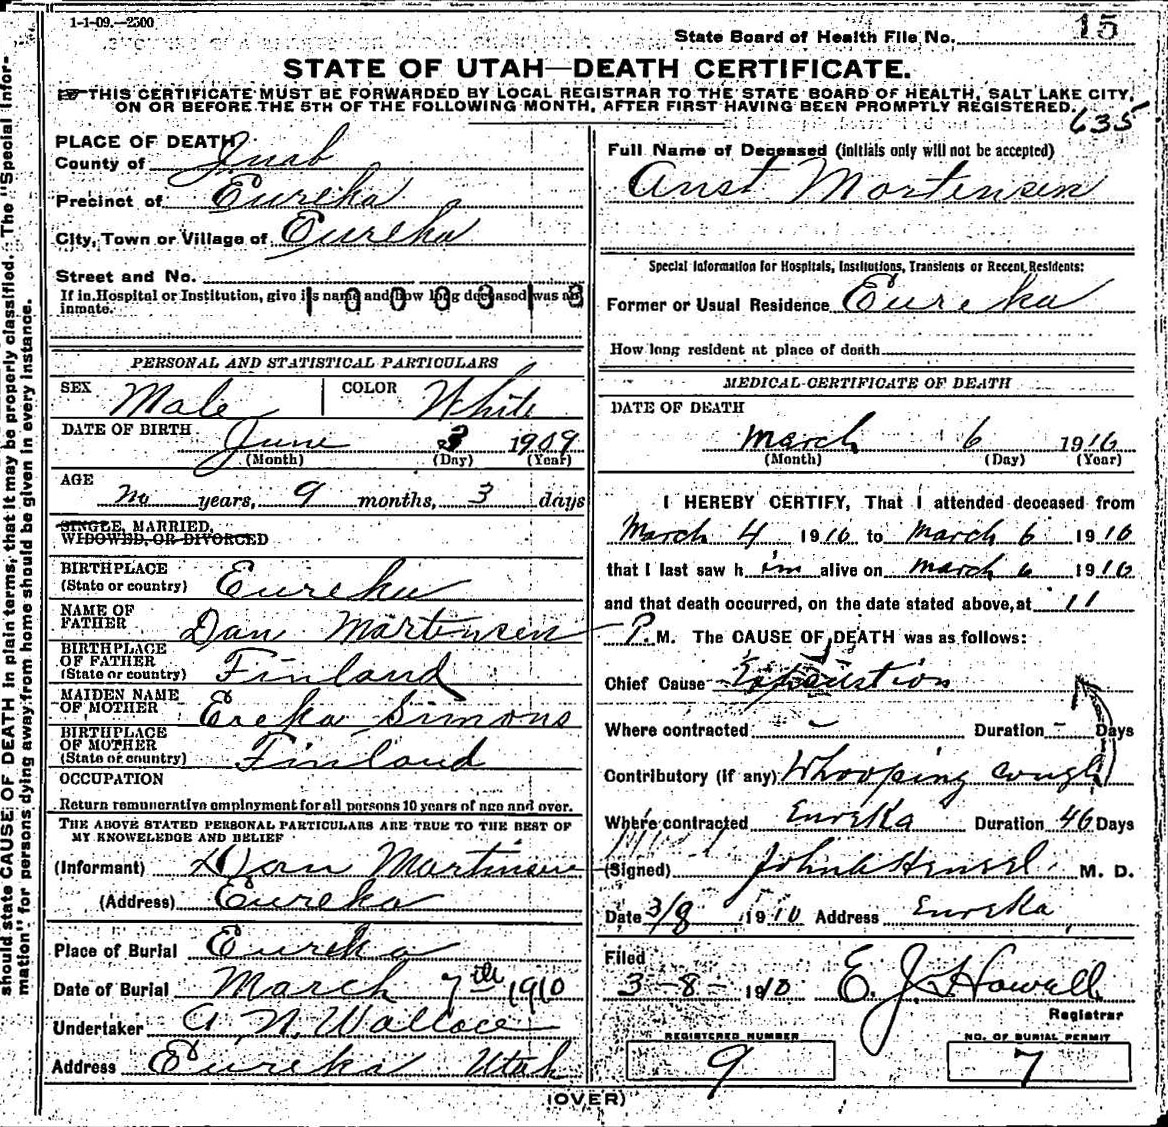 1-1-09.—2500
State Board of Health File No. 15
STATE OF UTAH—DEATH CERTIFICATE.
THIS CERTIFICATE MUST BE FORWARDED BY LOCAL REGISTRAR TO THE STATE BOARD OF HEALTH, SALT LAKE CITY,
ON OR BEFORE THE 5TH OF THE FOLLOWING MONTH, AFTER FIRST HAVING BEEN PROMPTLY REGISTERED.
635
PLACE OF DEATH
County of Juab
Precinct of Eureka
City, Town or Village of Eureka
Street and No.
If in Hospital or Institution, give its name and how long deceased was an
inmate.
1000313
PERSONAL AND STATISTICAL PARTICULARS
SEX Male COLOR White
DATE OF BIRTH June 3 1909
(Month) (Day) (Year)
AGE
no years, 9 months, 3 days
SINGLE, MARRIED,
WIDOWED, OR DIVORCED
BIRTHPLACE
(State or country) Eureka
NAME OF
FATHER Dan Martensen
BIRTHPLACE
OF FATHER
(State or country) Finland
MAIDEN NAME
OF MOTHER Ereka Simons
BIRTHPLACE
OF MOTHER
(State or country) Finland
OCCUPATION
Return remunerative employment for all persons 10 years of age and over.
THE ABOVE STATED PERSONAL PARTICULARS ARE TRUE TO THE BEST OF
MY KNOWLEDGE AND BELIEF
(Informant) Dan Martinsen
(Address) Eureka
Place of Burial Eureka
Date of Burial March 7th 1910
Undertaker A N. Wallace
Address Eureka Utah
Full Name of Deceased (initials only will not be accepted)
Anst Mortensen
Special Information for Hospitals, Institutions, Transients or Recent Residents:
Former or Usual Residence Eureka
How long resident at place of death
MEDICAL CERTIFICATE OF DEATH
DATE OF DEATH
March 6 1910
(Month) (Day) (Year)
I HEREBY CERTIFY, That I attended deceased from
March 4 1910 to March 6 1910
that I last saw him alive on March 6 1910
and that death occurred, on the date stated above, at 11
P. M. The CAUSE OF DEATH was as follows:
Chief Cause Exhaustion
Where contracted – Duration – Days
Contributory (if any) Whooping cough
Where contracted Eureka Duration 46 Days
(Signed) John Hensel M. D.
Date 3/8 1910 Address Eureka
Filed
3-8-1910 E. J. Howell
Registrar
REGISTERED NUMBER
9
NO. OF BURIAL PERMIT
7
(OVER)
should state CAUSE OF DEATH in plain terms, that it may be properly classified. The "Special Infor-
mation" for persons dying away from home should be given in every instance.